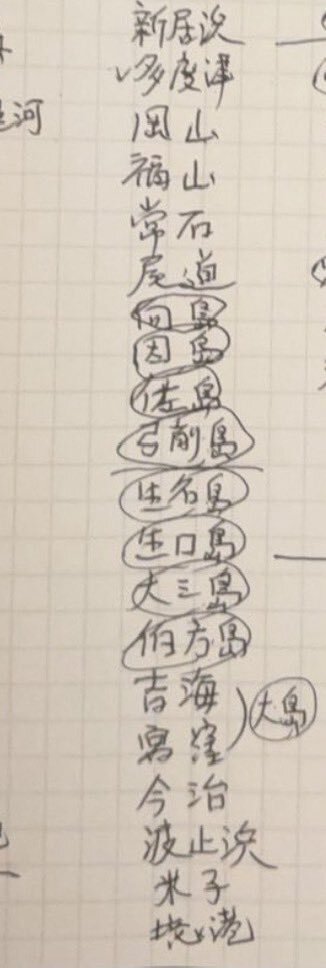 新居浜
多度津
岡山
福山
常石
尾道
向島
因島
佐島
弓削島
生名島
生口島
大三島
伯方島
吉海
宮窪
大島
今治
波止浜
米子
境港
河